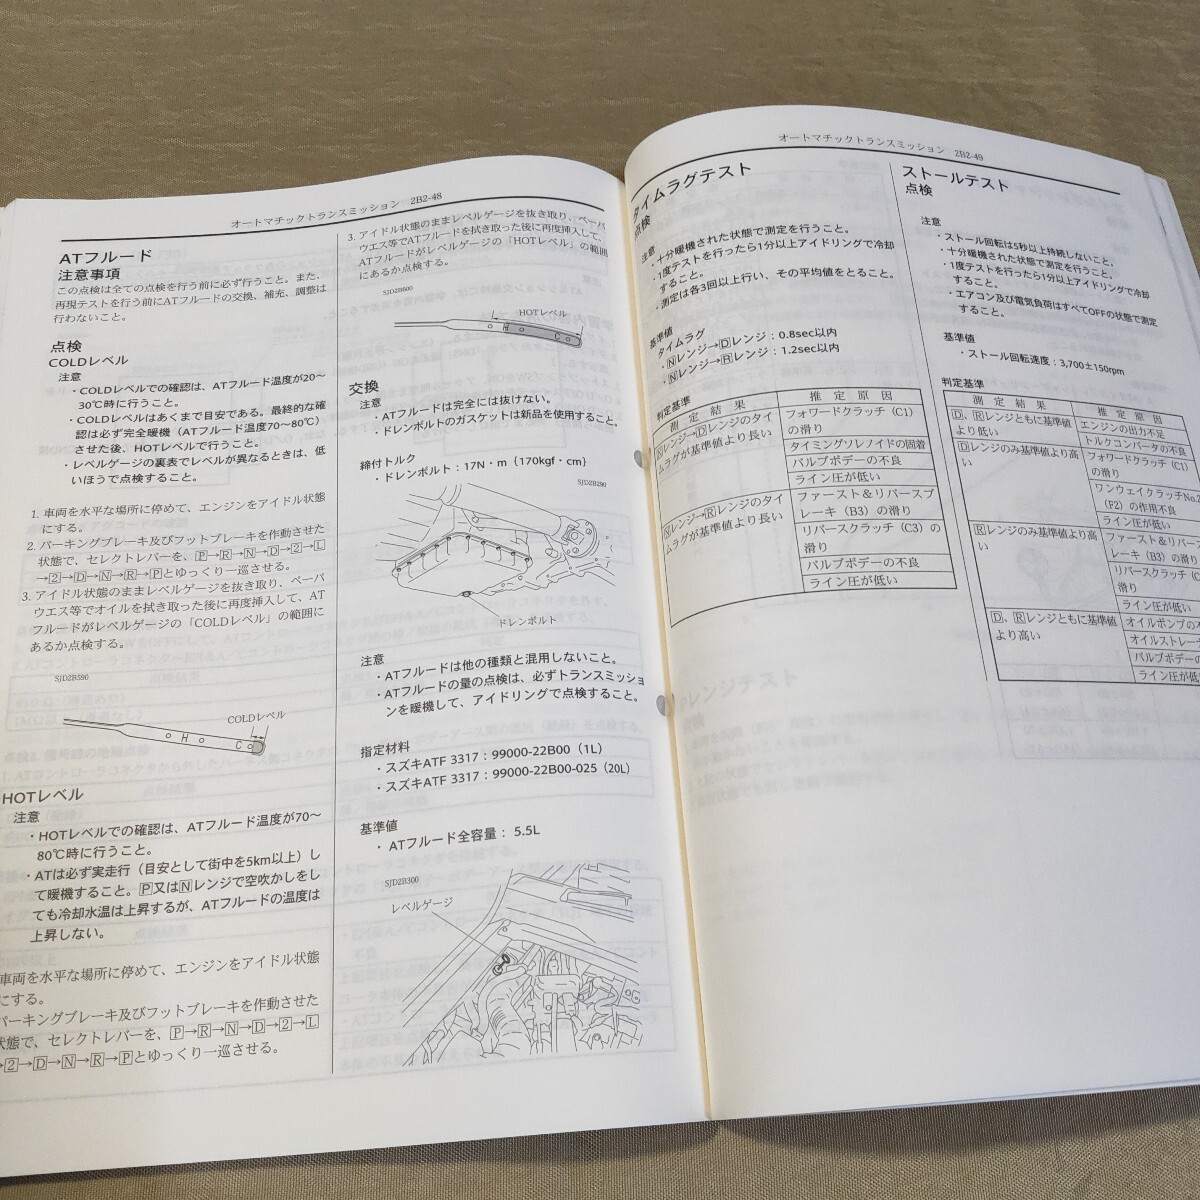 オートマチックトランスミッション 2B2-48
ATフルード
注意事項
この点検は全ての点検を行う前に必ず行うこと。また、
再現テストを行う前にATフルードの交換、補充、調整は
行わないこと。
点検
COLDレベル
注意
・COLDレベルでの確認は、ATフルード温度が20〜
30℃時に行うこと。
・COLDレベルはあくまで目安である。最終的な確
認は必ず完全暖機（ATフルード温度70〜80℃）
させた後、HOTレベルで行うこと。
・レベルゲージの裏表でレベルが異なるときは、低
いほうで点検すること。
1. 車両を水平な場所に停めて、エンジンをアイドル状態
にする。
2. パーキングブレーキ及びフットブレーキを作動させた
状態で、セレクトレバーを、P→R→N→D→2→L
→2→D→N→R→Pとゆっくり一巡させる。
3. アイドル状態のままレベルゲージを抜き取り、ペーパ
ウエス等でオイルを拭き取った後に再度挿入して、AT
フルードがレベルゲージの「COLDレベル」の範囲に
あるか点検する。
SJD2B590
COLDレベル
H C
HOTレベル
注意
・HOTレベルでの確認は、ATフルード温度が70〜
80℃時に行うこと。
・ATは必ず実走行（目安として街中を5km以上）し
て暖機すること。P又はNレンジで空吹かしをし
ても冷却水温は上昇するが、ATフルードの温度は
上昇しない。
車両を水平な場所に停めて、エンジンをアイドル状態
にする。
パーキングブレーキ及びフットブレーキを作動させた
状態で、セレクトレバーを、P→R→N→D→2→L
→2→D→N→R→Pとゆっくり一巡させる。
3. アイドル状態のままレベルゲージを抜き取り、ペーパ
ウエス等でATフルードを拭き取った後に再度挿入して、
ATフルードがレベルゲージの「HOTレベル」の範囲
にあるか点検する。
SJD2B600
HOTレベル
H C
交換
注意
・ATフルードは完全には抜けない。
・ドレンボルトのガスケットは新品を使用すること。
締付トルク
・ドレンボルト：17N・m｛170kgf・cm｝
SJD2B290
ドレンボルト
注意
・ATフルードは他の種類と混用しないこと。
・ATフルードの量の点検は、必ずトランスミッショ
ンを暖機して、アイドリングで点検すること。
指定材料
・スズキATF 3317：99000-22B00（1L）
・スズキATF 3317：99000-22B00-025（20L）
基準値
・ ATフルード全容量： 5.5L
SJD2B300
レベルゲージ
オートマチックトランスミッション 2B2-49
タイムラグテスト
点検
注意
・十分暖機された状態で測定を行うこと。
・1度テストを行ったら1分以上アイドリングで冷却
すること。
・測定は各3回以上行い、その平均値をとること。
基準値
タイムラグ
・Nレンジ→Dレンジ：0.8sec以内
・Nレンジ→Rレンジ：1.2sec以内
判定基準
測定結果 推定原因
Nレンジ→Dレンジのタイ
ムラグが基準値より長い
フォワードクラッチ（C1）
の滑り
タイミングソレノイドの固着
バルブボデーの不良
ライン圧が低い
Nレンジ→Rレンジのタイ
ムラグが基準値より長い
ファースト＆リバースブ
レーキ（B3）の滑り
リバースクラッチ（C3）の
滑り
バルブボデーの不良
ライン圧が低い
ストールテスト
点検
注意
・ストール回転は5秒以上持続しないこと。
・十分暖機された状態で測定を行うこと。
・1度テストを行ったら1分以上アイドリングで冷却
すること。
・エアコン及び電気負荷はすべてOFFの状態で測定
すること。
基準値
・ストール回転速度：3,700±150rpm
判定基準
測定結果 推定原因
D、Rレンジともに基準値
より低い
エンジンの出力不足
トルクコンバータの不良
Dレンジのみ基準値より高
い
フォワードクラッチ（C1）
の滑り
ワンウェイクラッチNo.2
（F2）の作用不良
ライン圧が低い
Rレンジのみ基準値より高
い
ファースト＆リバース
レーキ（B3）の滑り
リバースクラッチ（C
滑り
ライン圧が低い
D、Rレンジともに基準値
より高い
オイルポンプの不
オイルストレー
バルブボデーの
ライン圧が低